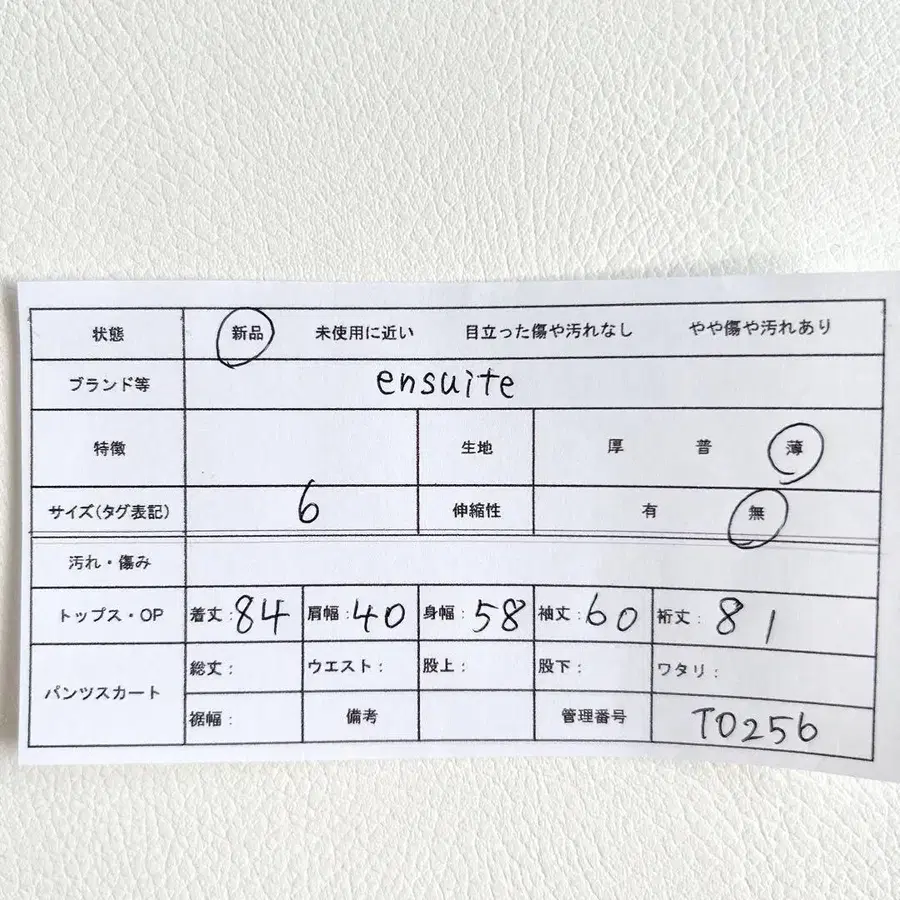 状態 新品 未使用に近い 目立った傷や汚れなし やや傷や汚れあり
ブランド等 ensuite
特徴 生地 厚 普 薄
サイズ(タグ表記) 6 伸縮性 有 無
汚れ・傷み
トップス・OP 着丈:84 肩幅:40 身幅:58 袖丈:60 裄丈:81
パンツスカート 総丈: ウエスト: 股上: 股下: ワタリ:
裾幅: 備考 管理番号 T0256